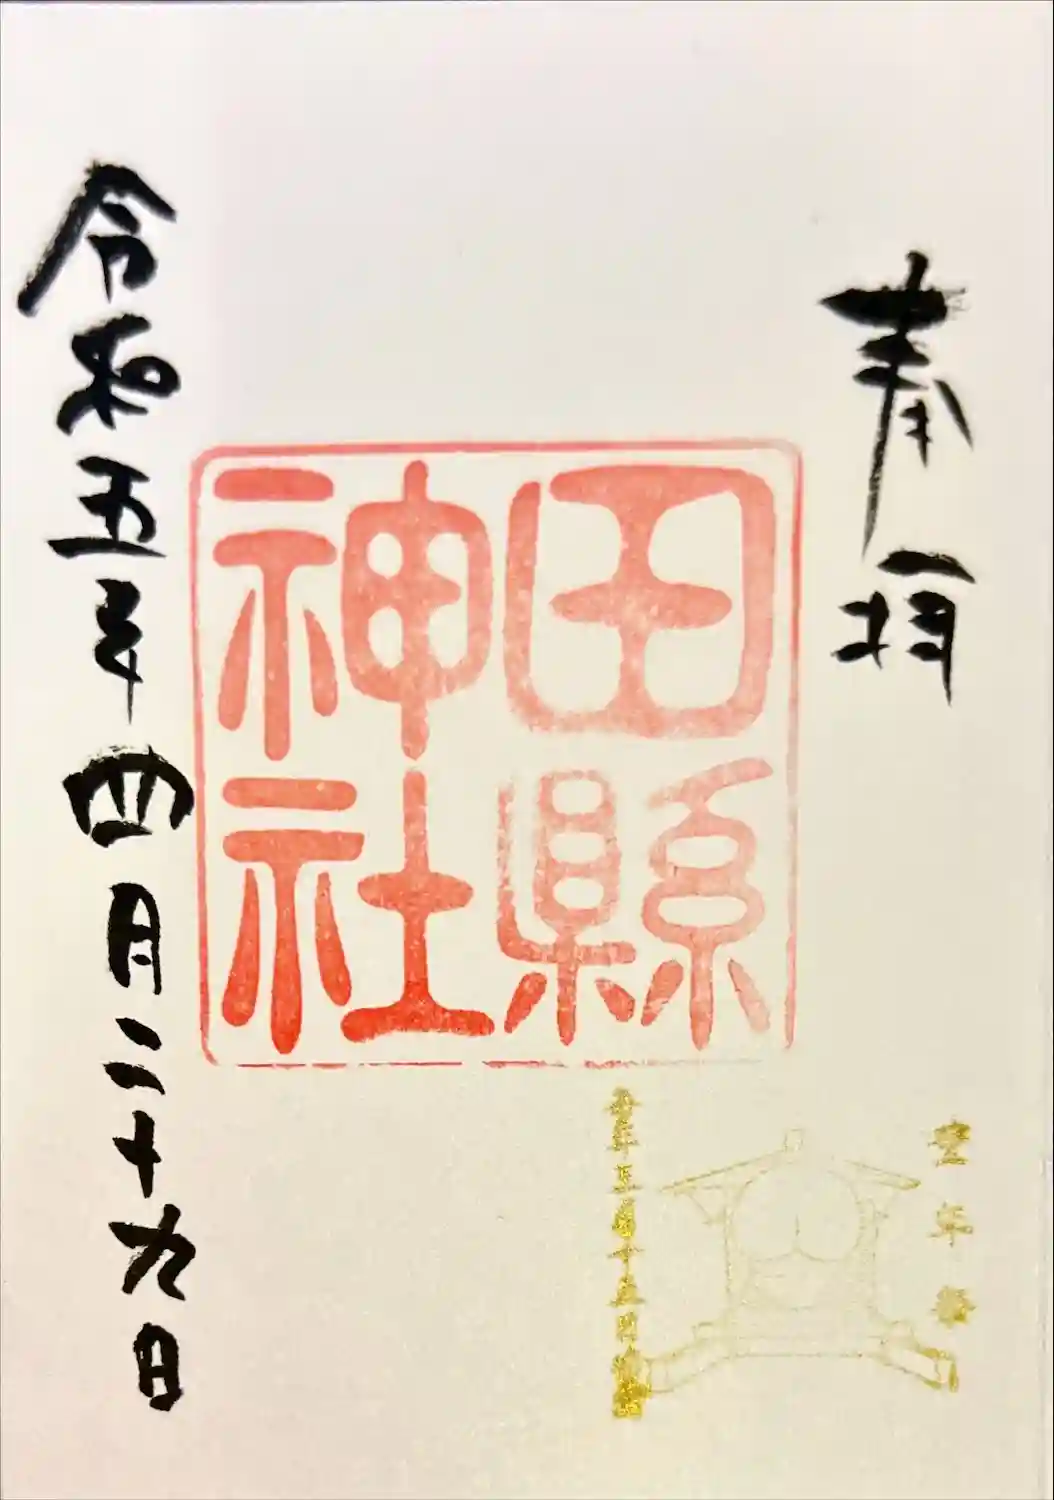 奉拝
田縣
神社
豊年祭
令和五年四月二十九日